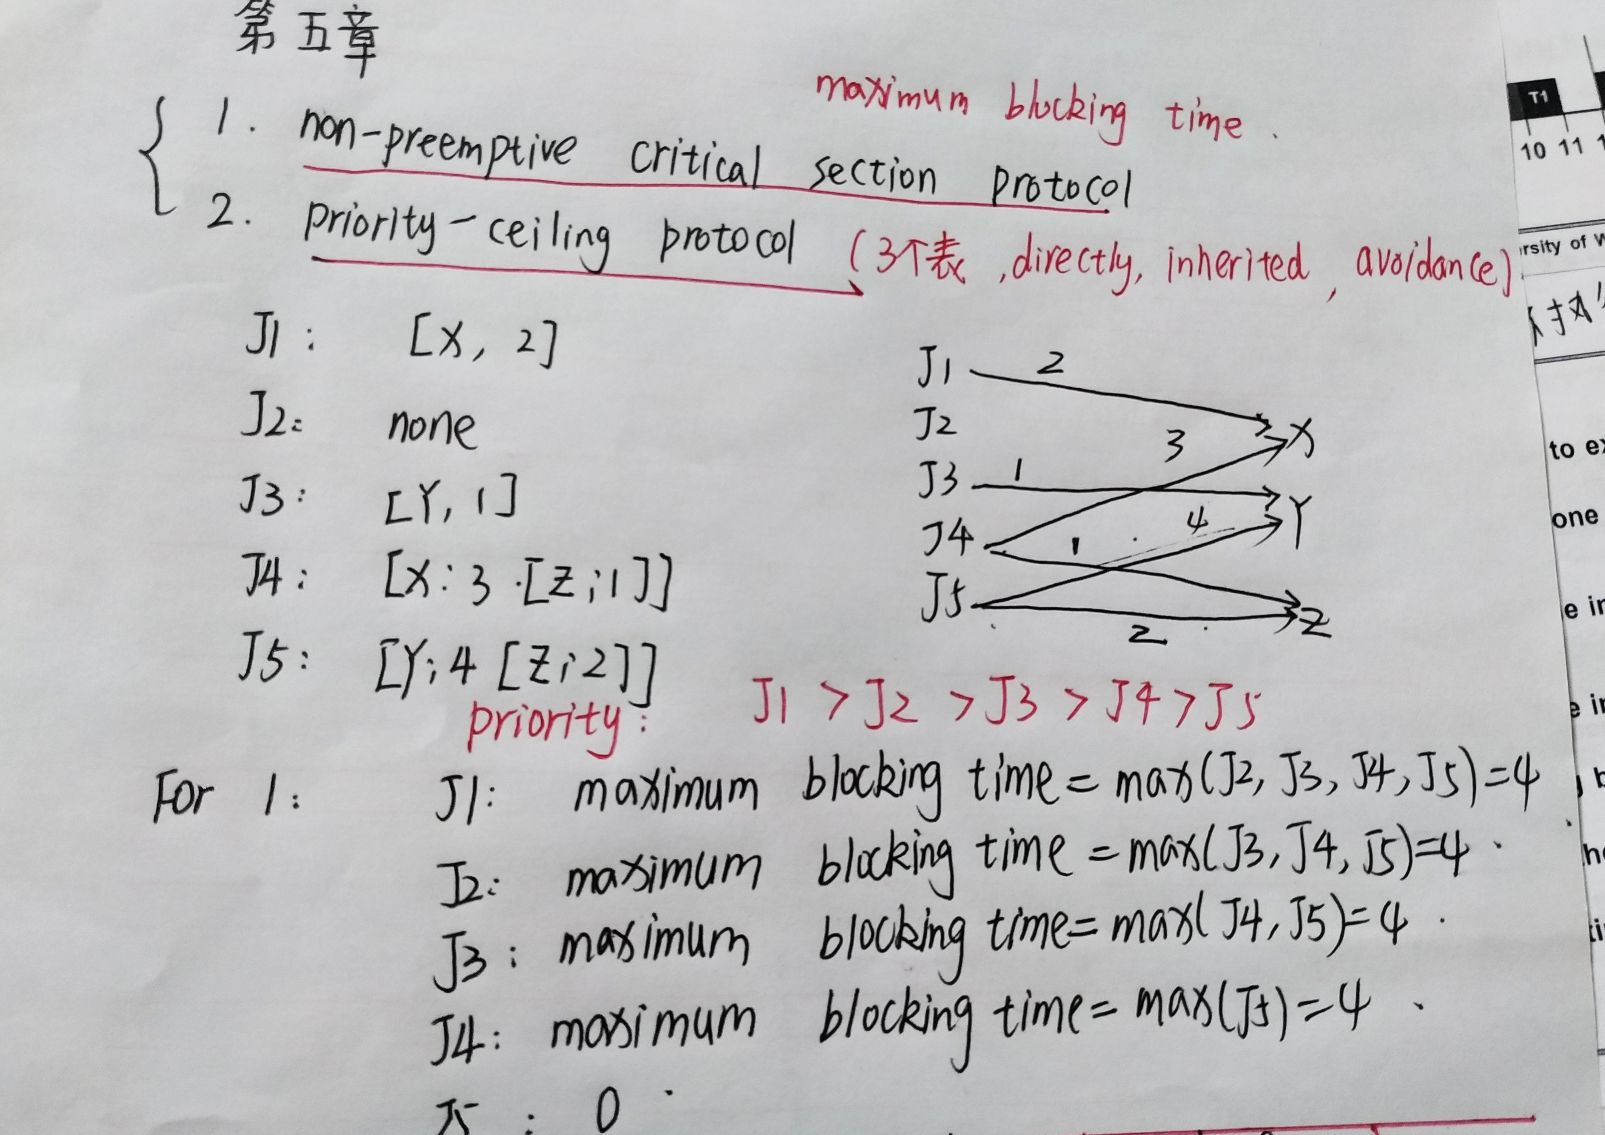 第五章
maximum blocking time.
1. non-preemptive critical section protocol
2. priority-ceiling protocol (3个表,directly, inherited, avoidance)
J1: [X, 2]
J2: none
J3: [Y, 1]
J4: [X:3 [Z;1]]
J5: [Y;4 [Z;2]]
J1 2
J2
J3 1
J4
J5
3
1
4
2
X
Y
Z
priority: J1 > J2 > J3 > J4 > J5
For 1: J1: maximum blocking time = max(J2, J3, J4, J5)=4
J2: maximum blocking time = max(J3, J4, J5)=4.
J3: maximum blocking time= max(J4, J5)=4.
J4: maximum blocking time= max(J5)=4.
J5: 0.
T1
10 11 1
rsity of W
to ex
one
e in
e in